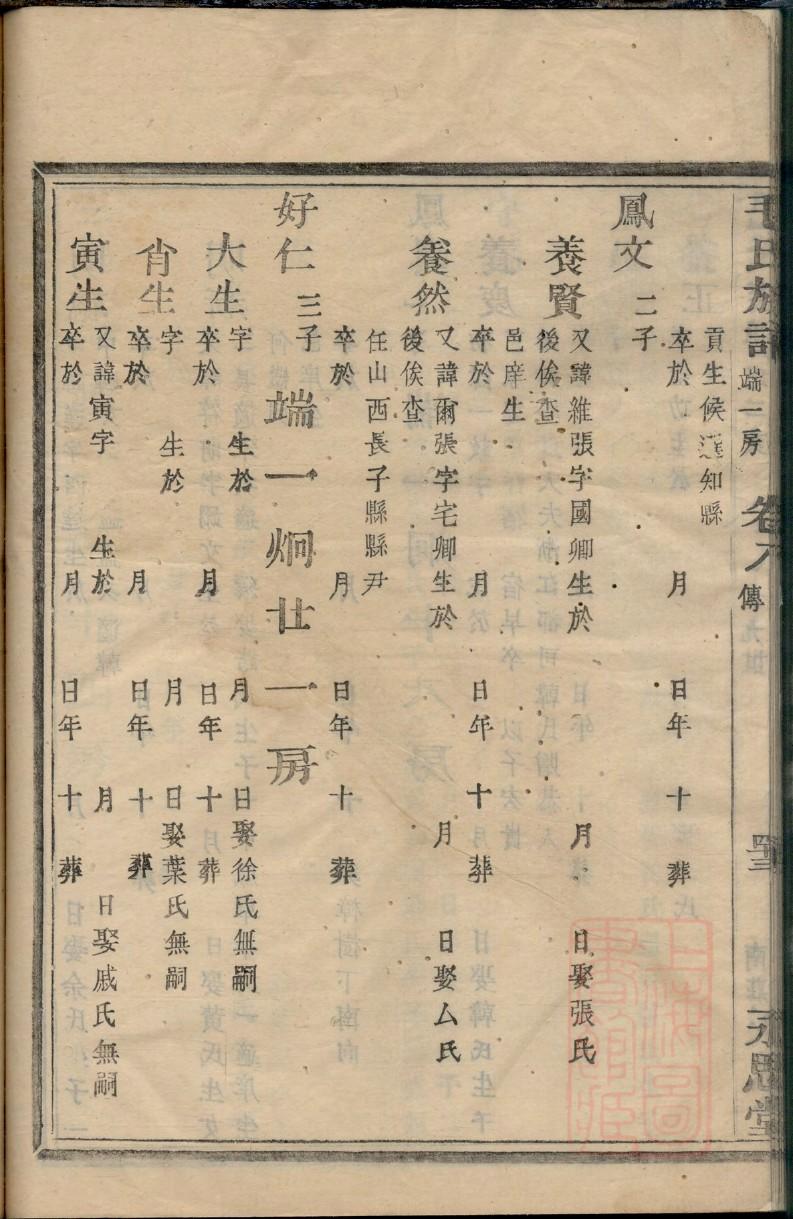 毛氏族譜 端一房 卷八 傳 四三 永思堂
貢生候選知縣
卒於 月 日年 十 葬
鳳文 二子
養賢 又諱維張字國卿生於 月 日娶張氏
後俟查
邑庠生
卒於 月 日年 十 葬
養然 又諱爾張字宅卿生於 月 日娶厶氏
後俟查
任山西長子縣縣尹
卒於 月 日年 十 葬
好仁 三子 端一炯廿一房
大生 字 生於 月 日娶徐氏無嗣
卒於 月 日年 十 葬
肖生 字 生於 月 日娶葉氏無嗣
卒於 月 日年 十 葬
寅生 又諱寅字 生於 月 日娶戚氏無嗣
卒於 月 日年 十 葬
上海圖書館藏